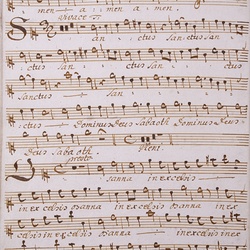 men a men a men.
Sanctus Sanctus San
ctus San ctus
Sanctus San
ctus Dominus Deus Sabaoth Dominus Deus
Deus Sabaoth pleni
presto
Osanna in excelsis
in excelsis osanna in excelsis
in excelsis osanna in excelsis